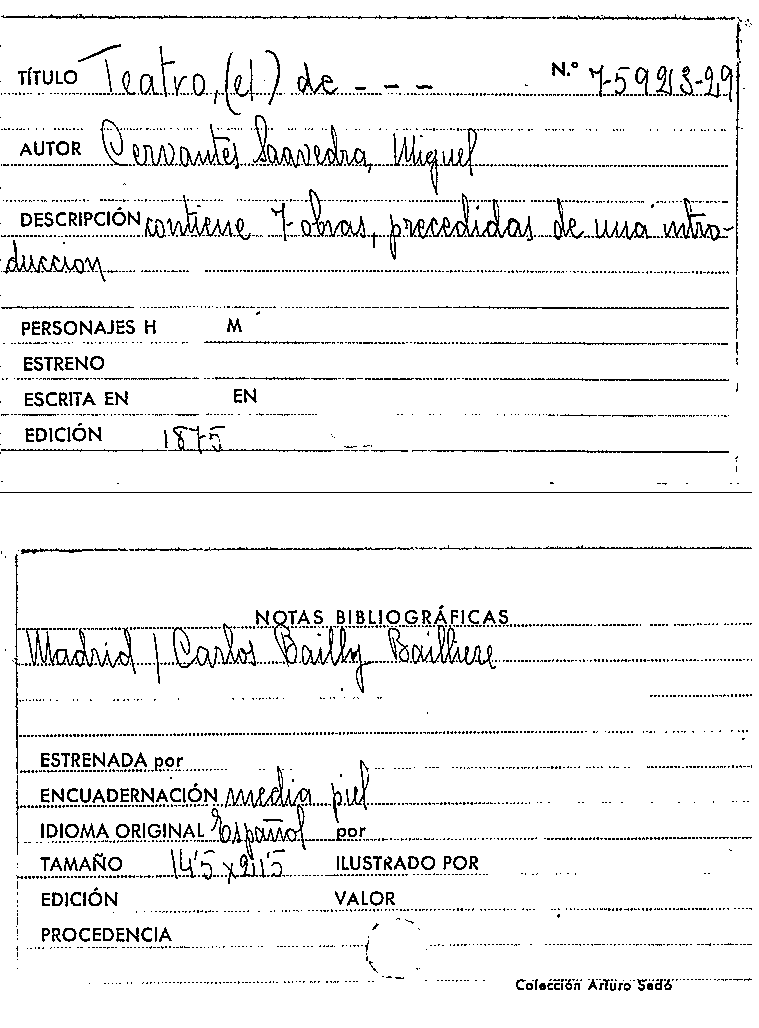 TÍTULO Teatro, (el) de - - - N.º 7-59213-29
AUTOR Cervantes Saavedra, Miguel
DESCRIPCIÓN contiene 7 obras, precedidas de una intro-
duccion
PERSONAJES H M
ESTRENO
ESCRITA EN EN
EDICIÓN 1875
NOTAS BIBLIOGRÁFICAS
Madrid / Carlos Bailly Bailliere
ESTRENADA por
ENCUADERNACIÓN media piel
IDIOMA ORIGINAL Español por
TAMAÑO 14'5 x 21'5 ILUSTRADO POR
EDICIÓN VALOR
PROCEDENCIA
Colección Arturo Sedó